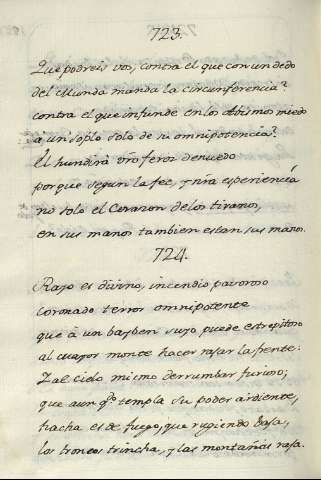 723.
Que podreis vos, contra el que con un dedo
del Mundo manda la circunferencia?
contra el que infunde en los Abismos miedo
a un soplo solo de su omnipotencia?
El hundirà vro feroz denuedo
porque segun la fee, y nra esperiencia
no solo el Corazon de los tiranos,
en sus manos tambien estan sus manos.
724.
Rayo es divino, incendio pavoroso
coronado terror omnipotente
que à un bayben suyo puede estrepitoso
al mayor monte hacer rajar la frente:
Y al cielo mismo derrumbar furioso;
que aun qdo templa su poder ardiente,
hacha es de fuego, que rugiendo baja,
los troncos trincha, y las montañas raja.